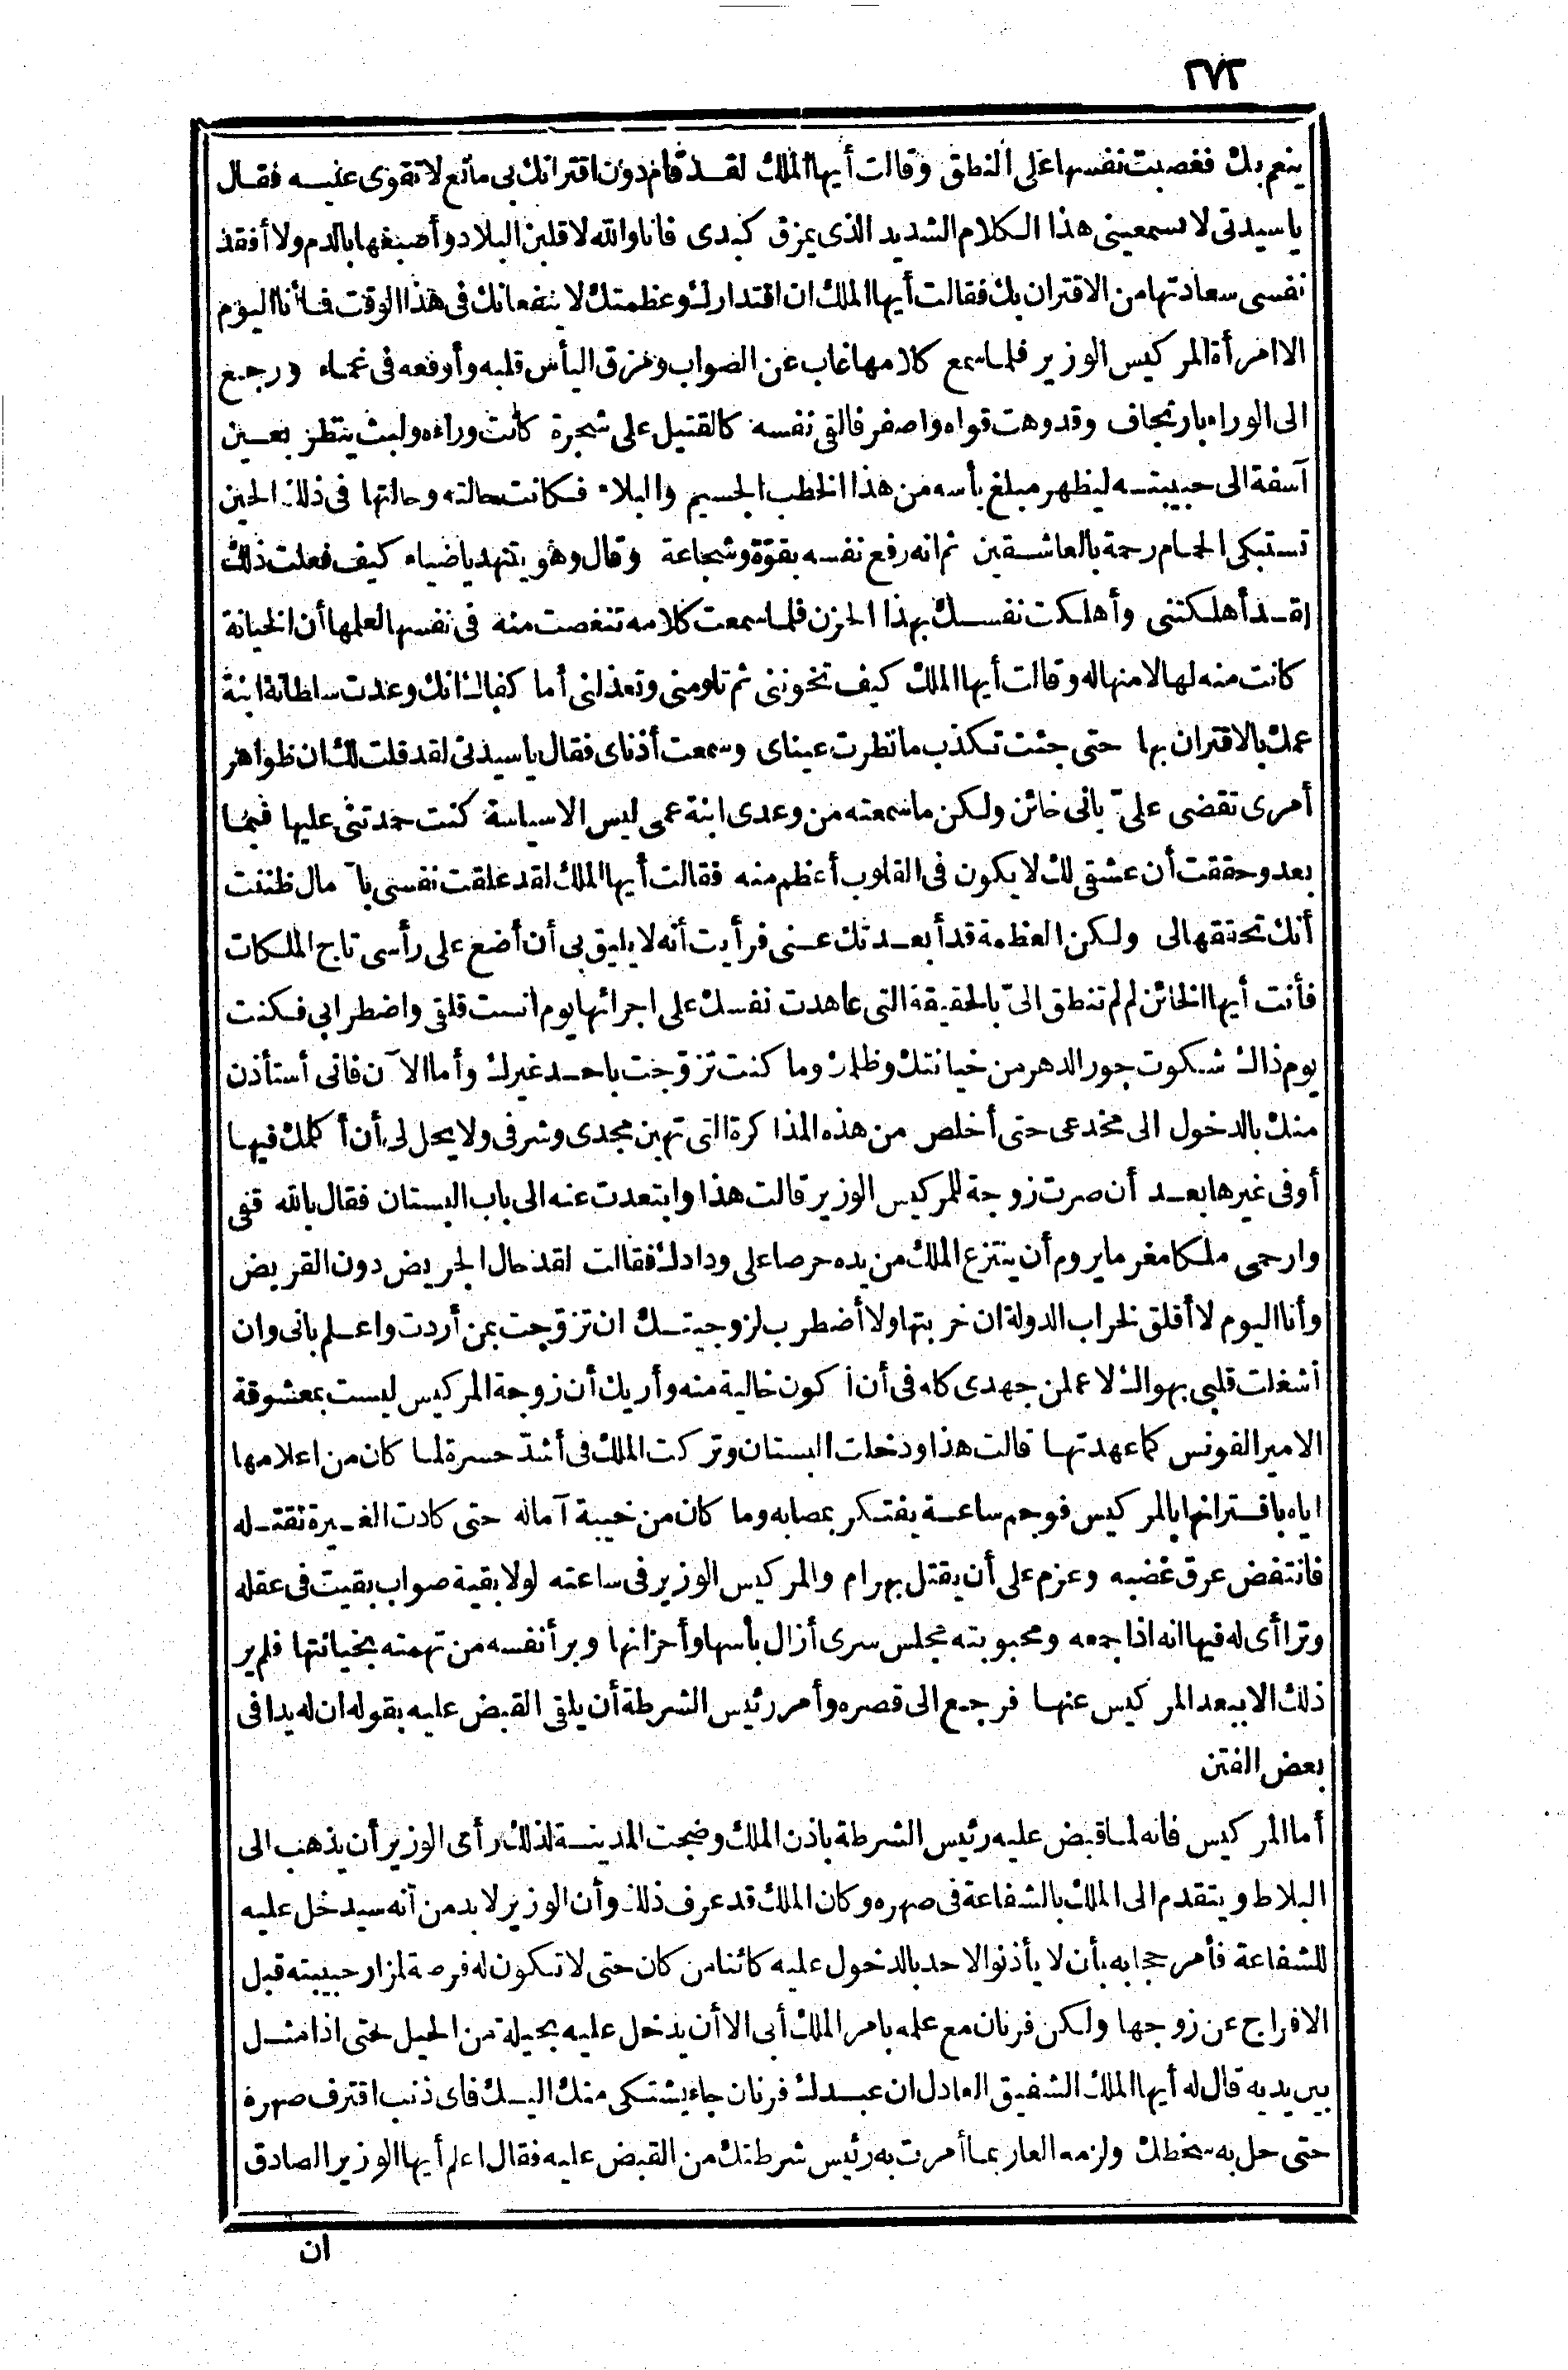 ٢٧٢
ينعم بك فغصبت نفسها على النطق وقالت أيها الملك لقد قام دون اقترانك بى مانع لا تقوى عليه فقال
يا سيدتى لا تسمعينى هذا الكلام الشديد الذى يمزق كبدى فانا والله لاقلبن البلاد وأصبغها بالدم ولا أفقد
نفسى سعادتها من الاقتران بك فقالت أيها الملك ان اقتدارك وعظمتك لا ينفعانك فى هذا الوقت فأنا اليوم
الا امرأة المركيس الوزير فلما سمع كلامها غاب عن الصواب ومزق اليأس قلبه وأوقعه فى غماء ورجع
الى الوراء بارتجاف وقد وهت قواه واصفر فالقى نفسه كالقتيل على شجرة كانت وراءه ولبث ينتظر بعين
آسفة الى حبيبته ليظهر مبلغ يأسه من هذا الخطب الجسيم والبلاء فكانت حالته وحالتها فى ذلك الحين
تستبكى الحمام رحمة بالعاشقين ثم انه رفع نفسه بقوّة وشجاعة وقال وهو يتنهد ياضياء كيف فعلت ذلك
لقد أهلكتنى وأهلكت نفسك بهذا الحزن فلما سمعت كلامه تنغصت منه فى نفسها لعلمها أن الخيانة
كانت منه لها لا منها له وقالت أيها الملك كيف تخوننى ثم تلومنى وتعذلنى أما كفاك انك وعدت سلطانة ابنة
عمك بالاقتران بها حتى جئت تكذب ما نظرت عيناى وسمعت أذناى فقال يا سيدتى لقد قلت لك ان ظواهر
أمرى تقضى علىّ بانى خائن ولكن ما سمعته من وعدى ابنة عمى ليس الا سياسة كنت حمدتنى عليها فيما
بعد وحققت أن عشقى لك لا يكون فى القلوب أعظم منه فقالت أيها الملك لقد علقت نفسى بآمال ظننت
أنك تحققها لى ولكن العظمة قد أبعدتك عنى فرأيت أنه لا يليق بى أن أضع على رأسى تاج الملكات
فأنت أيها الخائن لم لم تنطق الىّ بالحقيقة التى عاهدت نفسك على اجرائها يوم انست قلقى واضطرابى فكنت
يوم ذاك شكوت جور الدهر من خيانتك وظلمك وما كنت تزوّجت باحد غيرك وأما الآن فانى أستأذن
منك بالدخول الى مخدعى حتى أخلص من هذه المذاكرة التى تهين مجدى وشرفى ولا يحل لى أن أكلمك فيها
أو فى غيرها بعد أن صرت زوجة للمركيس الوزير قالت هذا وابتعدت عنه الى باب البستان فقال بالله قفى
وارحمى ملكا مغرما يروم أن ينتزع الملك من يده حرصا على ودادك فقالت لقد حال الجريض دون القريض
وأنا اليوم لا أقلق لخراب الدولة ان خربتها ولا أضطرب لزوجيتك ان تزوّجت بمن أردت واعلم بانى وان
أشغلت قلبى بهواك لاعملن جهدى كله فى أن أكون خالية منه وأريك أن زوجة المركيس ليست بمعشوقة
الامير الفونس كما عهدتها قالت هذا ودخلت البستان وتركت الملك فى أشدّ حسرة لما كان من اعلامها
اياه باقترانها بالمركيس فوجم ساعة يفتكر بمصابه وما كان من خيبة آماله حتى كادت الغيرة تقتله
فانتفض عرق غضبه وعزم على أن يقتل بهرام والمركيس الوزير فى ساعته لولا بقية صواب بقيت فى عقله
وتراأى له فيها انه اذا جمعه ومحبوبته مجلس سرى أزال بأسها وأحزانها وبرأ نفسه من تهمته بخيانتها فلم ير
ذلك الا ببعد المركيس عنها فرجع الى قصره وأمر رئيس الشرطة أن يلقى القبض عليه بقوله ان له يدا فى
بعض الفتن
أما المركيس فانه لما قبض عليه رئيس الشرطة باذن الملك وضجت المدينة لذلك رأى الوزير أن يذهب الى
البلاط ويتقدم الى الملك بالشفاعة فى صهره وكان الملك قد عرف ذلك وأن الوزير لا بد من أنه سيدخل عليه
للشفاعة فأمر حجابه بأن لا يأذنوا لاحد بالدخول عليه كائنا من كان حتى لا تكون له فرصة لمزار حبيبته قبل
الافراج عن زوجها ولكن فرنان مع علمه بامر الملك أبى الا أن يدخل عليه بحيلة من الحيل حتى اذا مثل
بين يديه قال له أيها الملك الشفيق العادل ان عبدك فرنان جاء يشتكى منك اليك فاى ذنب اقترف صهره
حتى حل به سخطك ولزمه العار بما أمرت به رئيس شرطتك من القبض عليه فقال اعلم أيها الوزير الصادق
ان